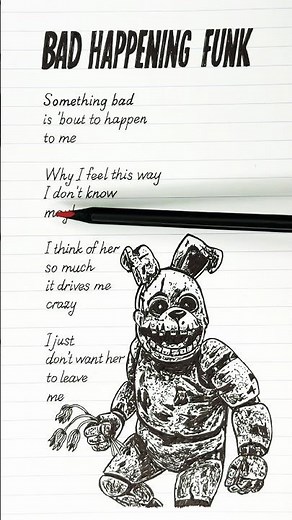 BAD HAPPENING FUNK
Something bad
is 'bout to happen
to me
Why I feel this way
I don't know
I think of her
so much
it drives me
crazy
I just
don't want her
to leave
me